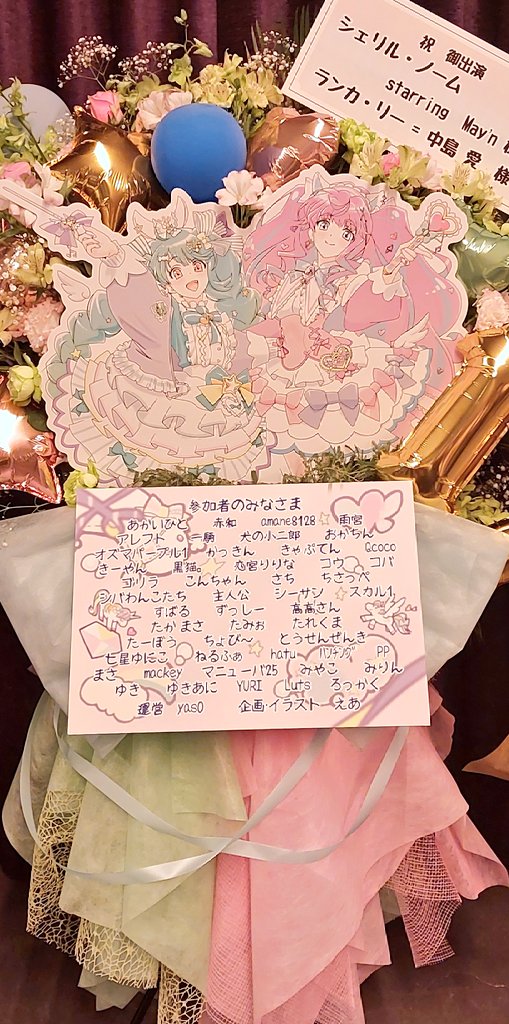 祝 御出演
シェリル・ノーム
starring May'n
ランカ・リー=中島 愛 様
参加者のみなさま
あかいひと 赤和 amane8128 雨宮
アレフト 一騎 犬の小二郎 おかちん
オズマパープル1 かっきん きゃぷてん Qcoco
きーやん 黒猫。 恋宮りりな コウ コバ
ゴリラ こんちゃん さち ちさっぺ
シバわんこたち 主人公 シーサシ スカル1
すばる ずっしー 高高さん
たかまさ たみぉ たれくま
たーぼう ちょび〜 とうせんぜんき
七星ゆにこ ねるふぁ hatu ハンチング PP
まさ mackey マニューバ25 みやこ みりん
ゆき ゆきあに YURI Luts ろっかく
運営 yasO 企画・イラスト えあ